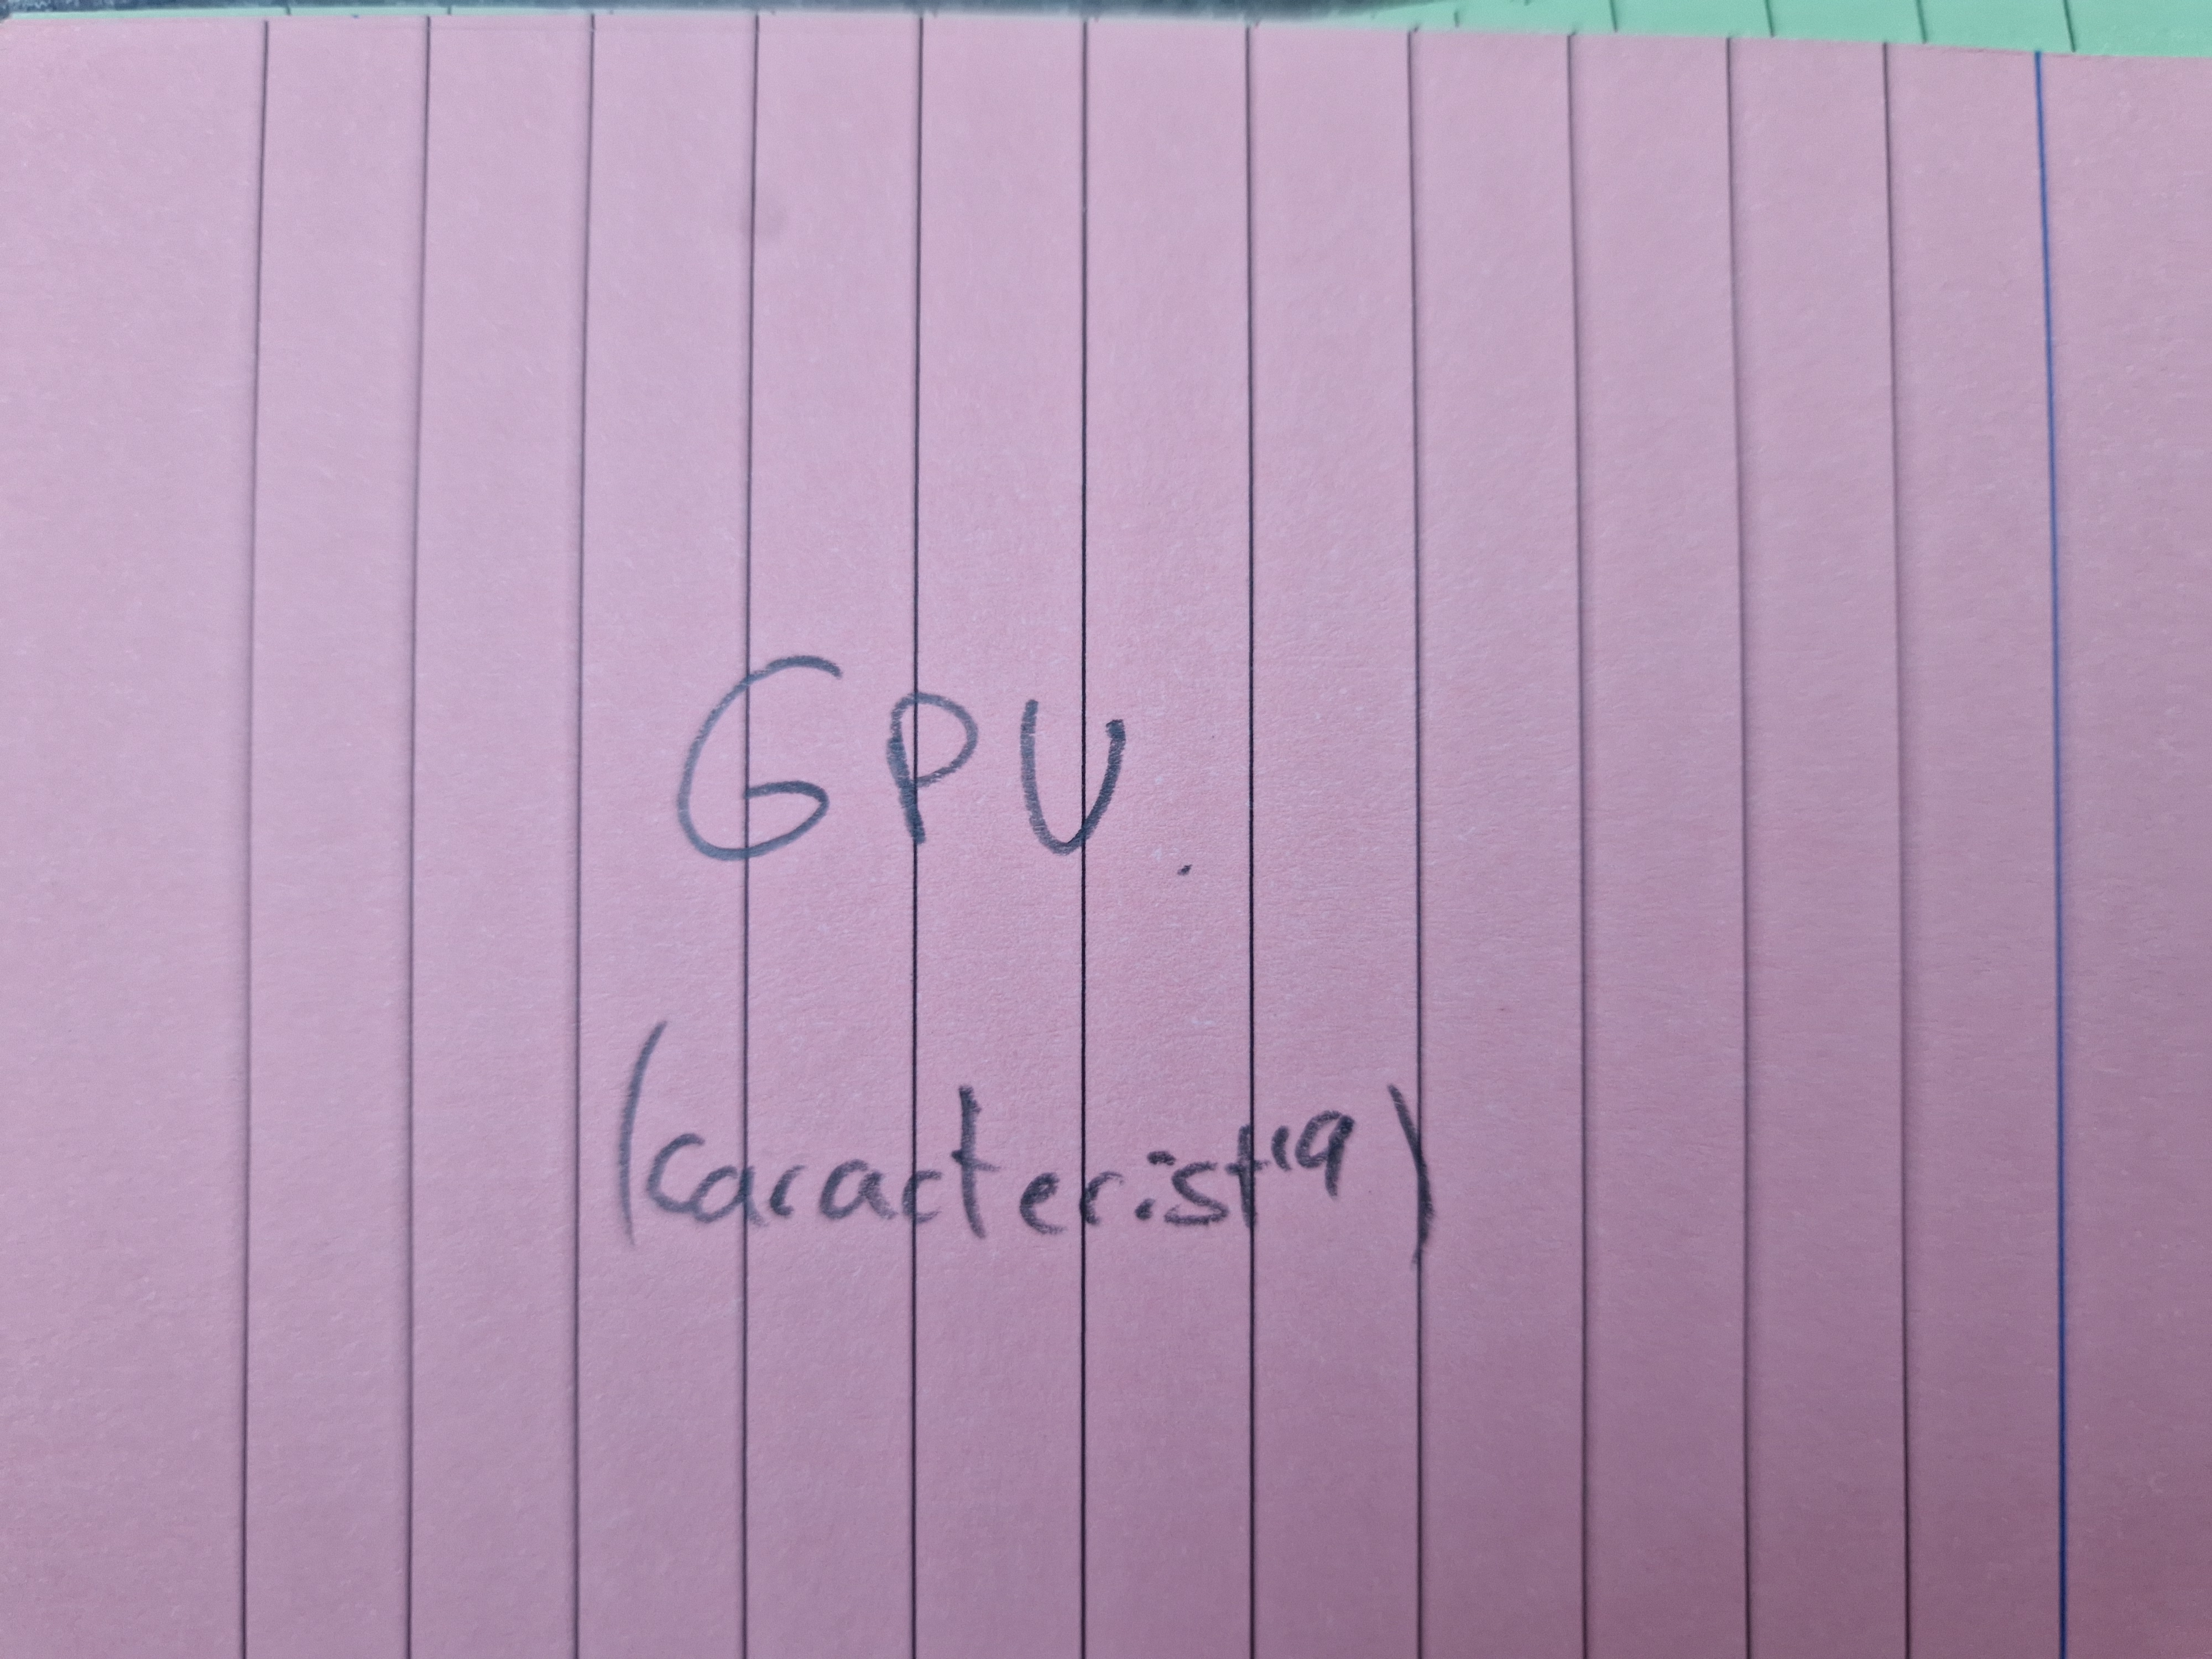 GPU.
(caracterist^ia)